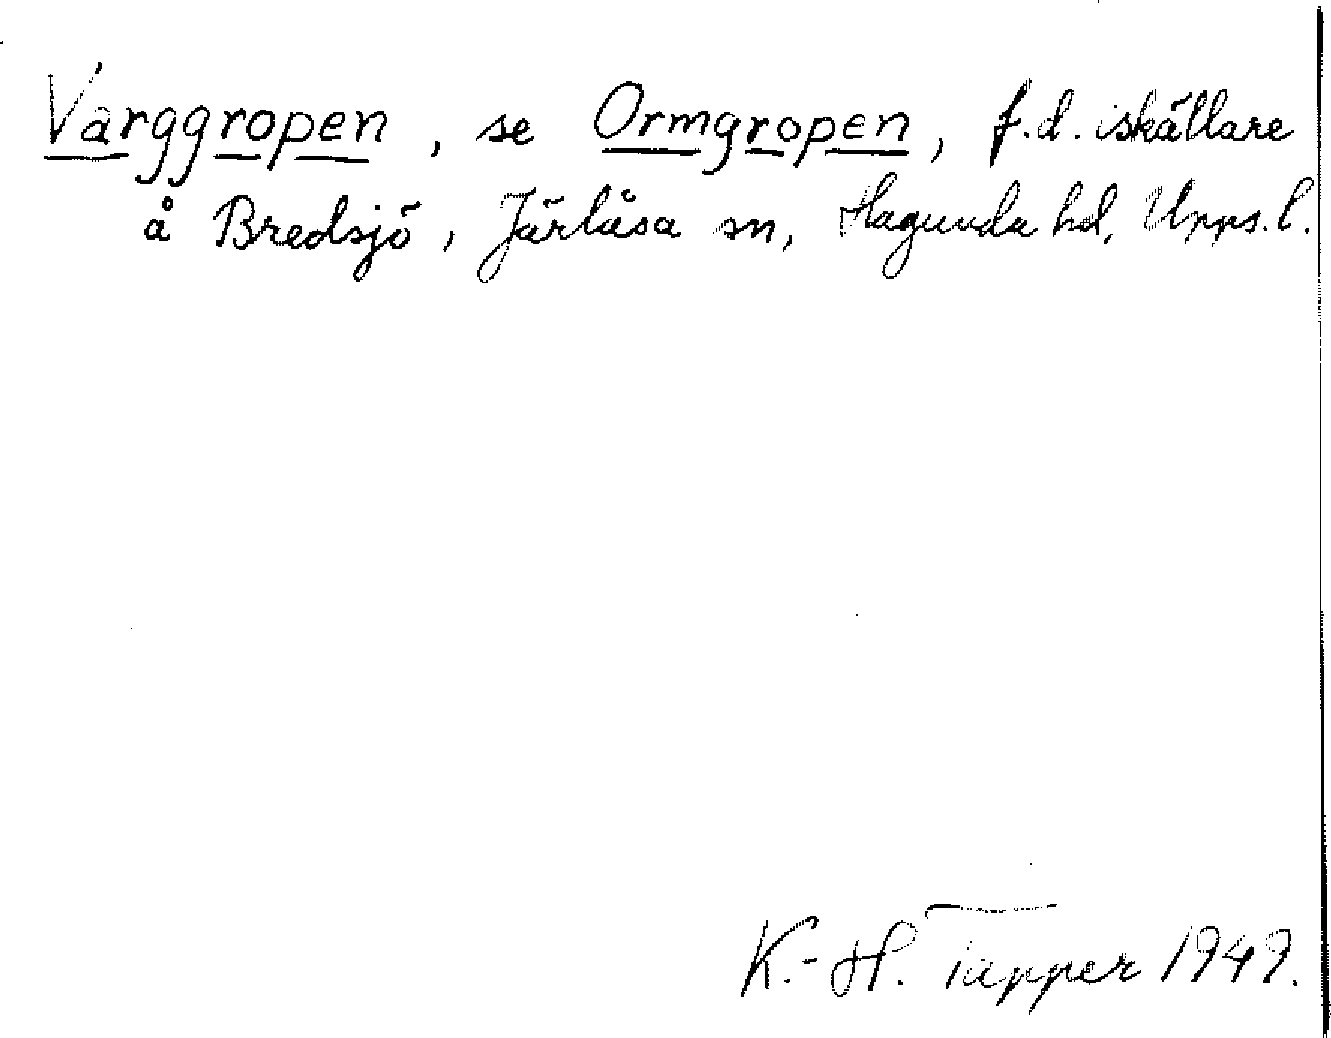 Varggropen, se Ormgropen, f.d. iskällare
å Bredsjö, Järlåsa sn, Hagunda hd, Upps. l.
K.-H. Tapper 1949.